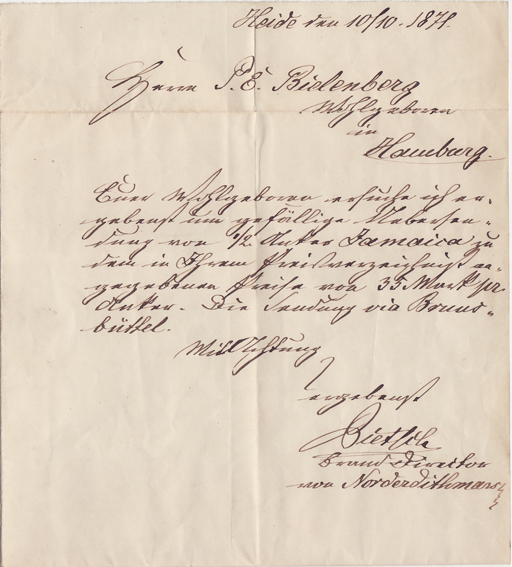 Heide den 10/10. 1871.
Herrn P. E. Bielenberg
Wohlgeboren
in
Hamburg.
Euer Wohlgeboren ersuche ich er-
gebenst um gefällige Uebersen-
dung von 1/2 Anker Jamaica zu
dem in Ihrem Preisverzeichniß an-
gegebenen Preise von 33 Mark pr.
Anker. Die Sendung via Bruns-
büttel.
Mit Achtung
ergebenst
Brand Director
von Norderdithmarsch